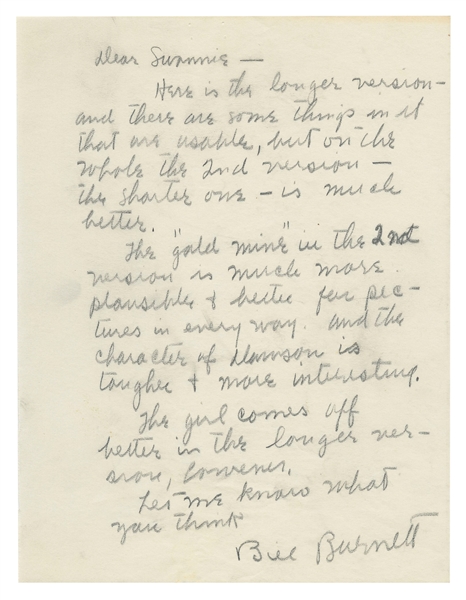 Dear Swannie —
Here is the longer version -
and there are some things in it
that are usable, but on the
whole the 2nd version —
the shorter one — is much
better.
The "gold mine" in the 2nd
version is much more
plausible & better for pic-
tures in every way. And the
character of Dawson is
tougher & more interesting.
The girl comes off
better in the longer ver-
sion, however.
Let me know what
you think
Bill Burnett